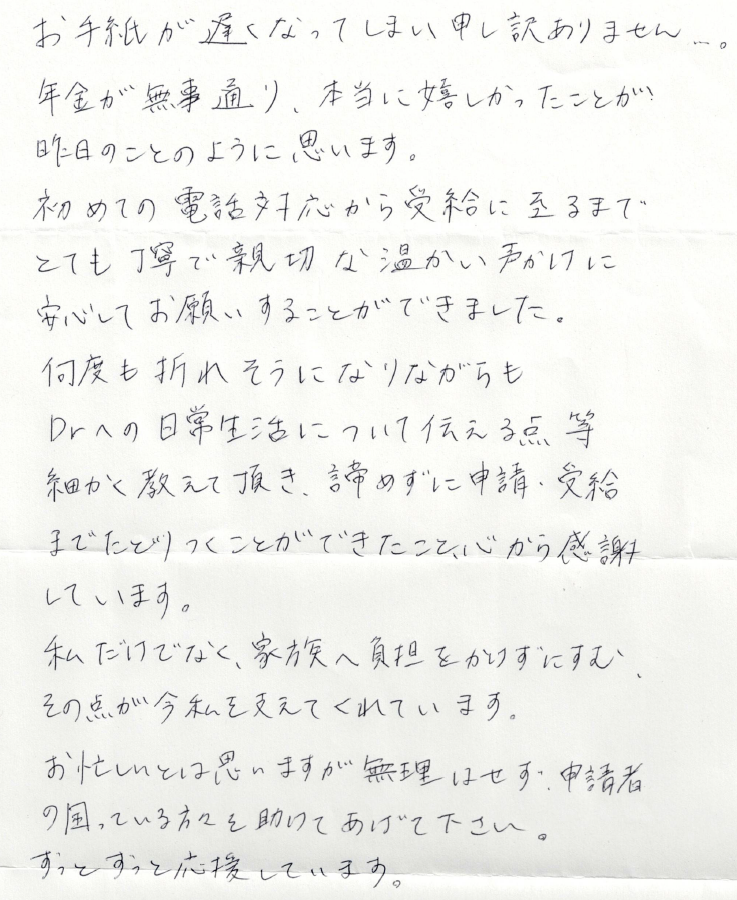 お手紙が遅くなってしまい申し訳ありません…。
年金が無事通り、本当に嬉しかったことが
昨日のことのように思います。
初めての電話対応から受給に至るまで
とても丁寧で親切な温かい声かけに
安心してお願いすることができました。
何度も折れそうになりながらも
Drへの日常生活について伝える点等
細かく教えて頂き、諦めずに申請・受給
までたどりつくことができたこと、心から感謝
しています。
私だけでなく、家族へ負担をかけずにすむ、
その点が今私を支えてくれています。
お忙しいとは思いますが無理はせず、申請者
の困っている方々を助けてあげて下さい。
ずっとずっと応援しています。